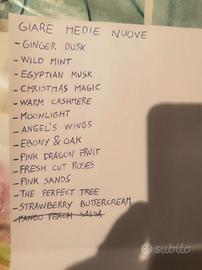 GIARE MEDIE NUOVE
- GINGER DUSK
- WILD MINT
- EGYPTIAN MUSK
- CHRISTMAS MAGIC
- WARM CASHMERE
- MOONLIGHT
- ANGEL'S WINGS
- EBONY & OAK
- PINK DRAGON FRUIT
- FRESH CUT ROSES
- PINK SANDS
- THE PERFECT TREE
- STRAWBERRY BUTTERCREAM
- MANGO PEACH SALSA
subito